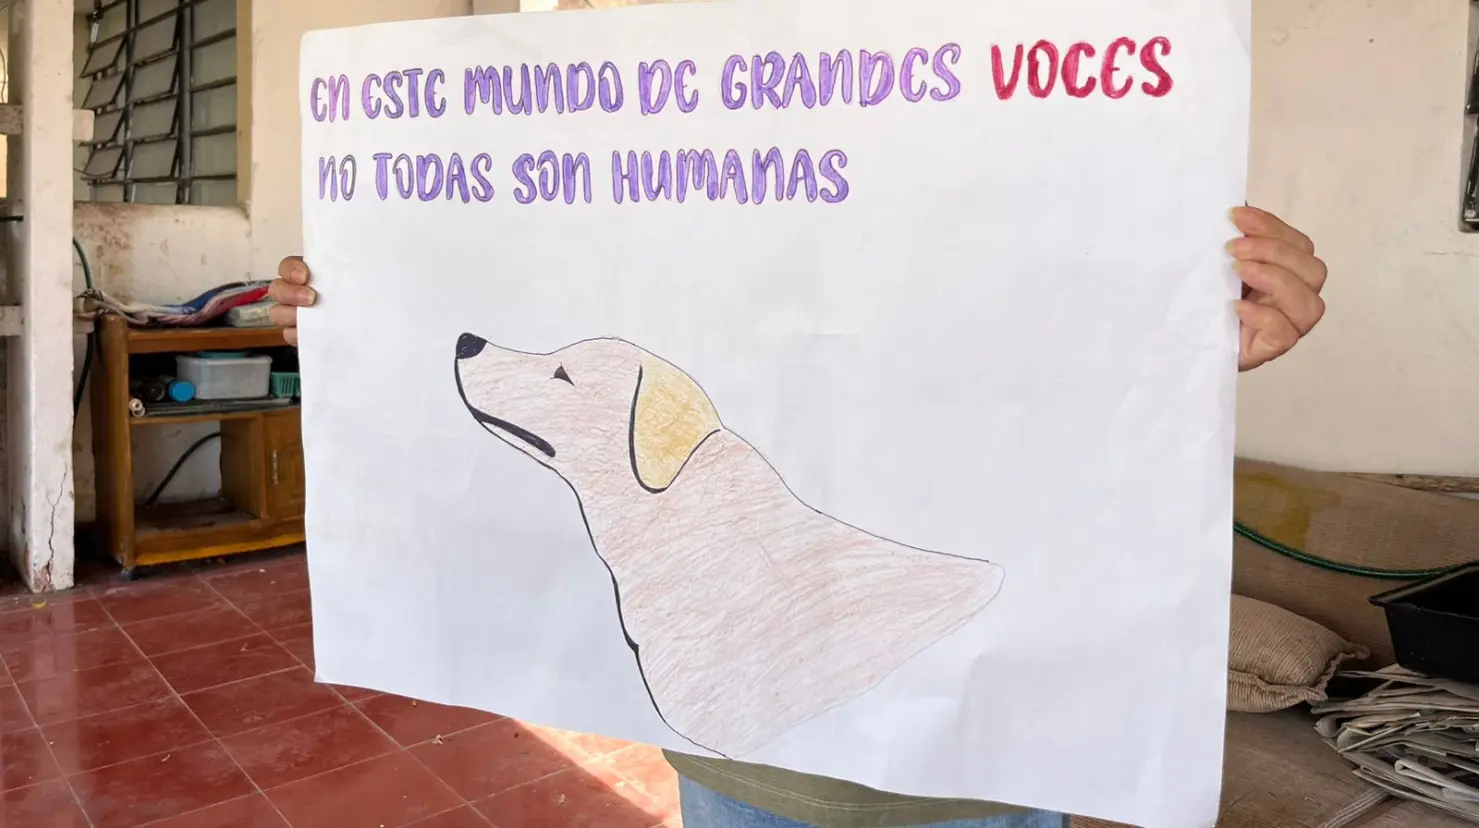 EN ESTE MUNDO DE GRANDES VOCES
NO TODAS SON HUMANAS